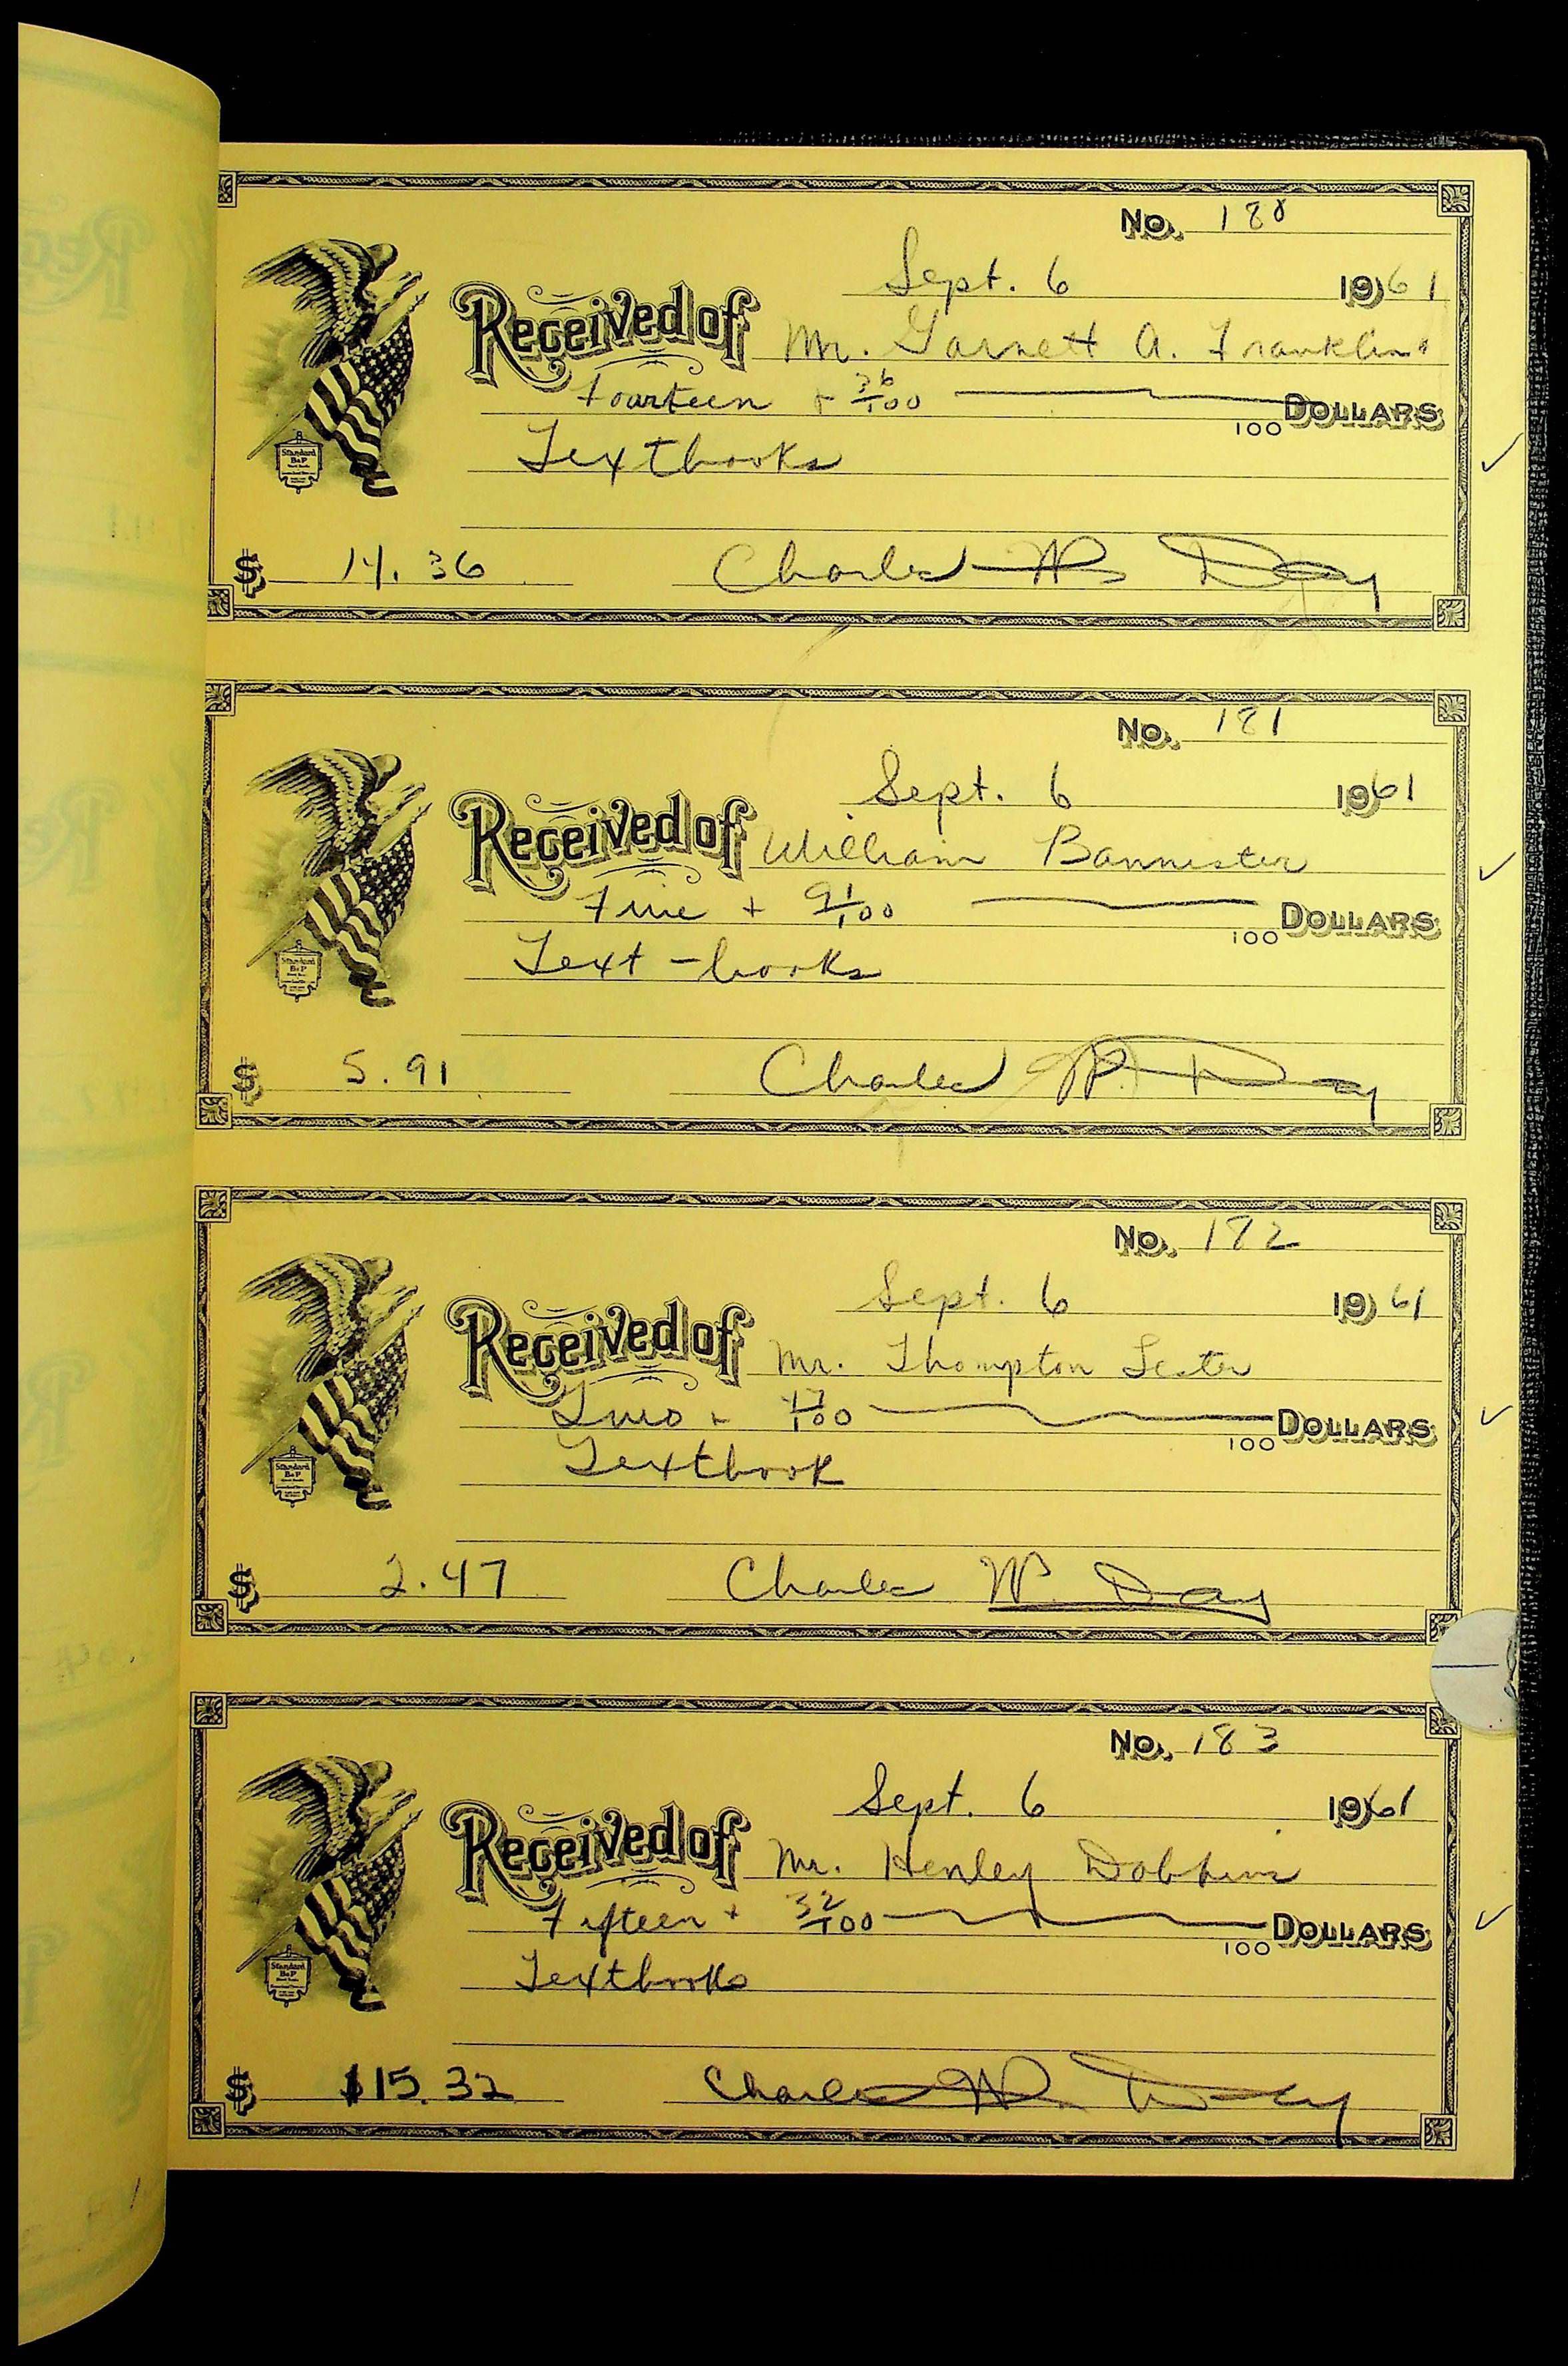 No. 180
Sept. 6 1961
Received of Mr. Garnett A. Franklin
Fourteen + 36/100 DOLLARS
100
Textbooks
Standard
B&P
$ 14.36 Charles W. Day
No. 181
Sept. 6 1961
Received of William Bannister
Five + 91/100 DOLLARS
100
Text-books
Standard
B&P
$ 5.91 Charles W. Day
No. 182
Sept. 6 1961
Received of Mr. Thompton Lester
Two + 47/100 DOLLARS
100
Textbook
Standard
B&P
$ 2.47 Charles W. Day
No. 183
Sept. 6 1961
Received of Mr. Henley Dobbins
Fifteen + 32/100 DOLLARS
100
Textbooks
Standard
B&P
$ $15.32 Charles W. Day